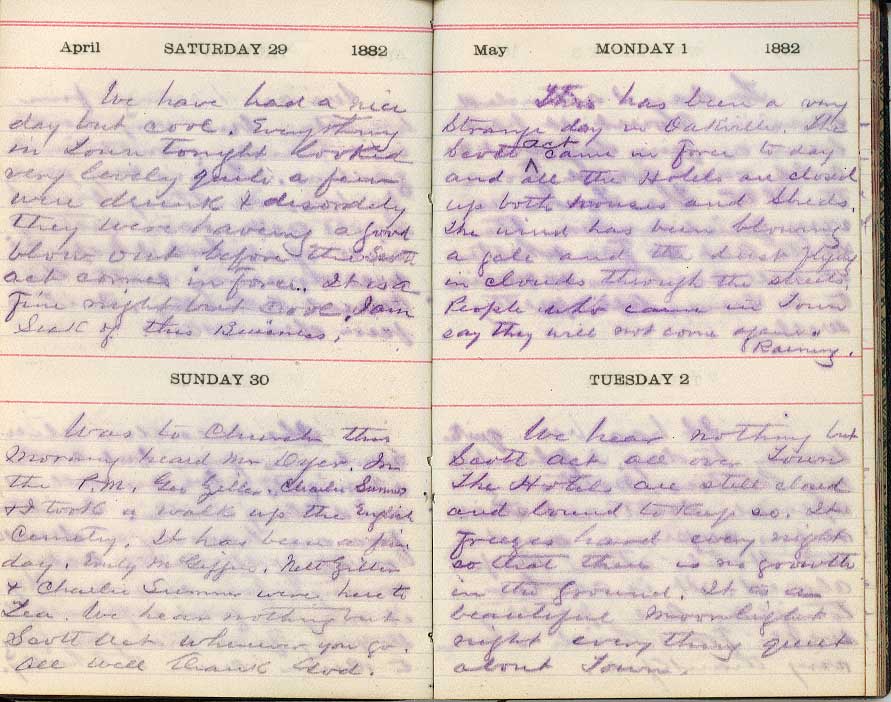 April SATURDAY 29 1882
We have had a nice
day but cool. Everything
in Town tonight looked
very lovely quite a few
were drunk & disordely
they were having a good
blow out before the Scott
act comes in force. It is a
fine night but cool. I am
Sick of this Business.
SUNDAY 30
Was to Church this
Morning heard Mr Dyer. In
the P.M. Geo Charlie Sumner
& I took a walk up the English
Cemetry. It has been a fine
day. Emily McGiffin, Nell
& Charlie Sumner were here to
Tea. We hear nothing but
Scott Act wherever you go.
All well Thank God.
May MONDAY 1 1882
This has been a very
Strange day in Oakville. The
Scott act came in force to day
and all the Hotels are closed
up both houses and Sheds.
The wind has been blowing
a gale and the dust flying
in clouds through the streets.
People who came in Town
say they will not come again.
Raining.
TUESDAY 2
We hear nothing but
Scott act all over Town
The Hotels are still closed
and bound to keep so. It
freezes hard every night
so that there is no growth
in the ground. It is a
beautiful moonlight
night everything quiet
about Town.